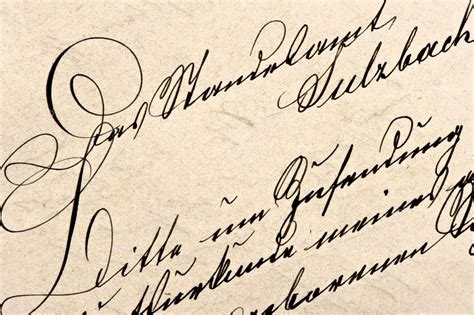 Das Standesamt
Sulzbach
Bitte um Zusendung
meines
geborenen